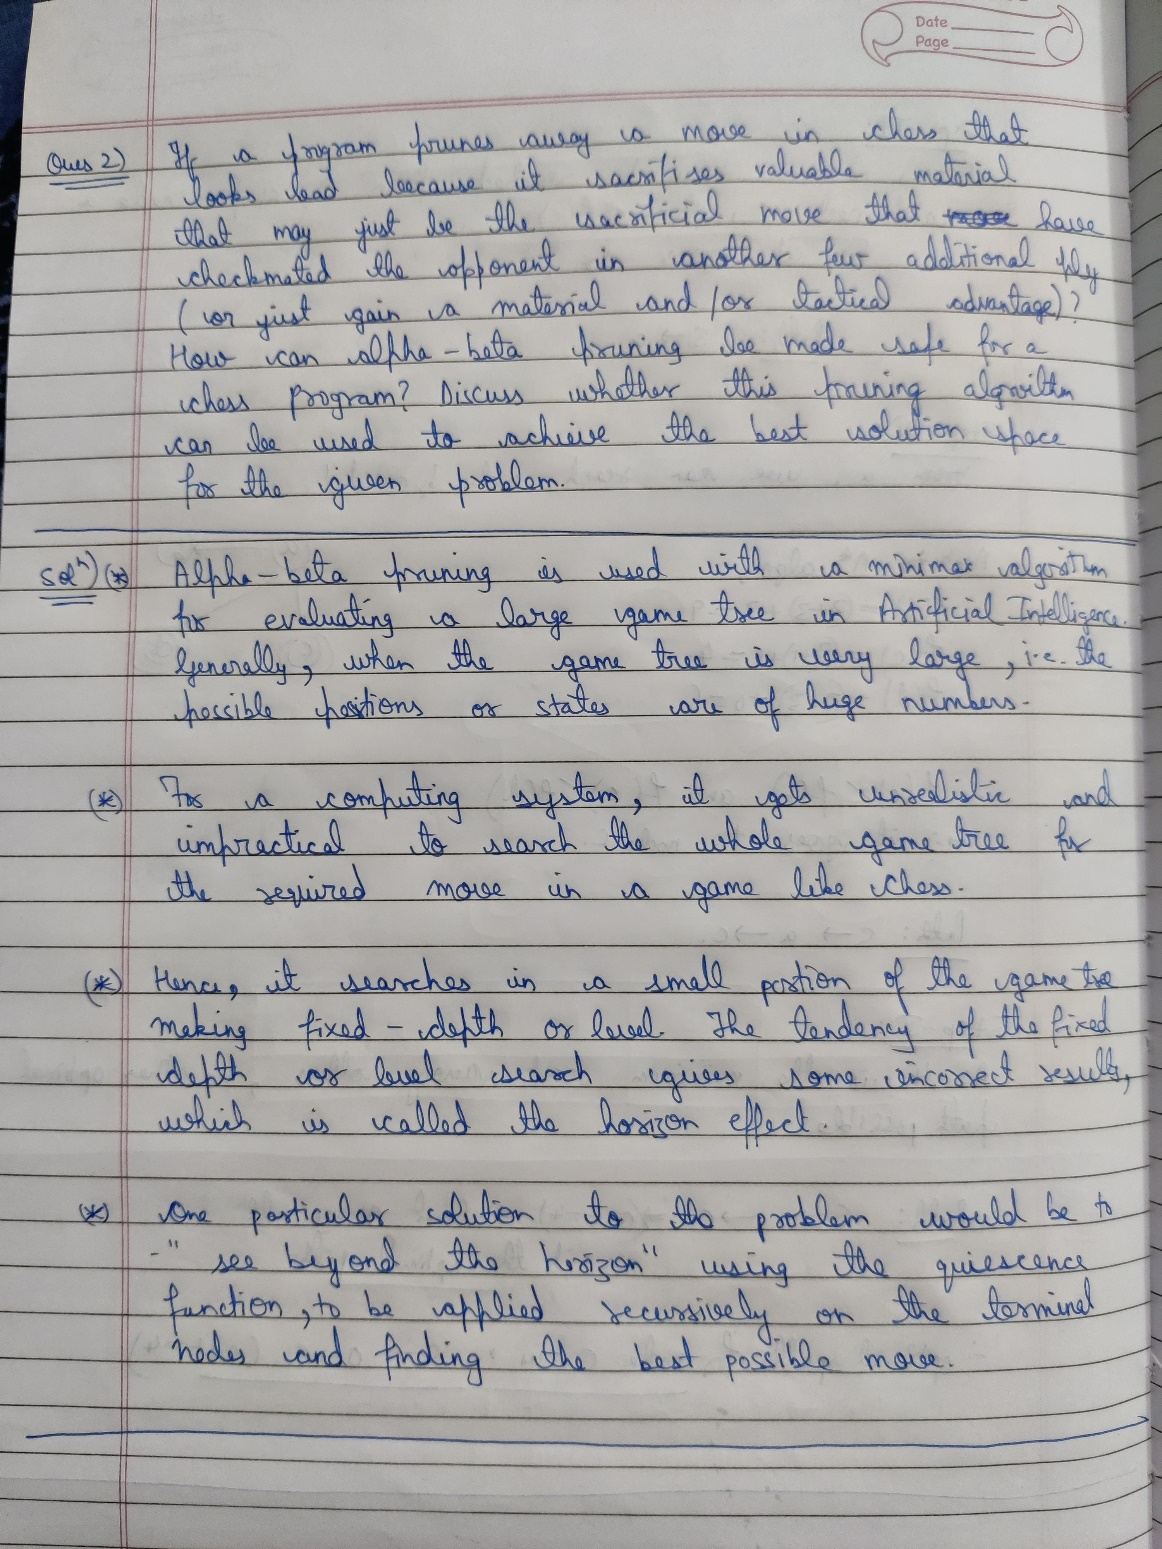 Date
Page
Ques 2) If a program prunes away a move in chess that
looks bad because it sacrifises valuable material
that may just be the sacrificial move that have
checkmated the opponent in another few additional ply
(or just gain a material and/or tactical advantage)?
How can alpha-beta pruning be made safe for a
chess program? Discuss whether this pruning algorithm
can be used to achieve the best solution space
for the given problem.
Solⁿ) (*) Alpha-beta pruning is used with a minimax algorithm
for evaluating a large game tree in Artificial Intelligence.
Generally, when the game tree is very large, i.e. the
possible positions or states are of huge numbers.
(*) For a computing system, it gets unrealistic and
impractical to search the whole game tree for
the required move in a game like chess.
(*) Hence, it searches in a small portion of the game tree
making fixed-depth or level. The tendency of the fixed
depth or level search gives some incorrect results,
which is called the horizon effect.
(*) One particular solution to the problem would be to
-" see beyond the horizon" using the quiescence
function, to be applied recursively on the terminal
nodes and finding the best possible move.